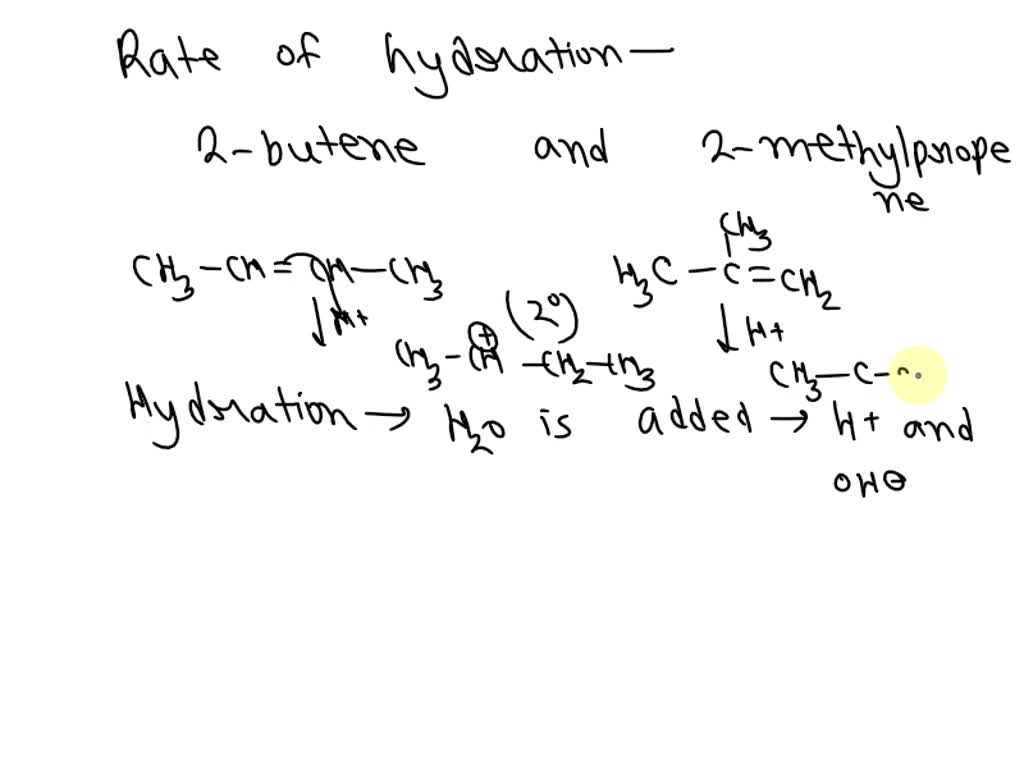 Rate of hydration —
2-butene and 2-methylprope
ne
CH3-CH=CH-CH3
CH3
H3C-C=CH2
↓H+
(2°)
↓H+
CH3-CH-CH2-CH3
⊕
CH3-C-
Hydration → H2O is added → H+ and
OH⊖